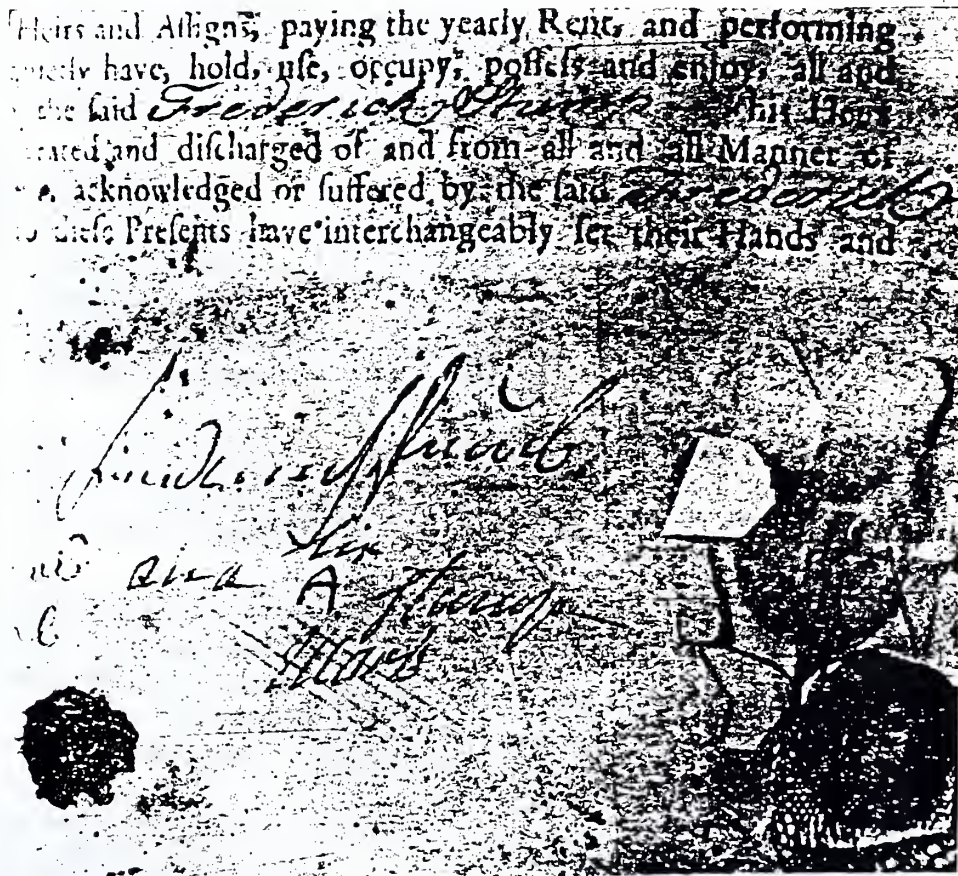 Heirs and Aſſigns, paying the yearly Rent, and performing
have, hold, uſe, occupy, poſſeſs and enjoy, all and
the ſaid Frederick Stump his Heirs
and diſcharged of and from all and all Manner of
acknowledged or ſuffered by the ſaid Frederick
theſe Preſents have interchangeably ſet their Hands and
his
A Stump
Mark